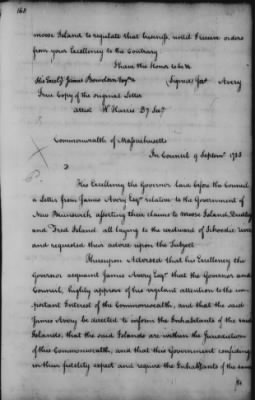 168
moose Island to regulate that business, until I receive orders
from your Excellency to the Contrary
I have the Honor to be &c
His Excelly James Bowdoin Esqr (Signed) Jas Avery
True Copy of the original Letter
attest W Harris D Secy
Commonwealth of Massachusetts
In Council 9 Septemr 1785
His Excellency the Governor laid before the Council
a Letter from James Avery Esqr relative to the Government of
New Brunswick asserting their claims to moose Island, Dudley
and Fred Island all laying to the westward of Schoodic River
and requested their advice upon the Subject
Thereupon Advised that his Excellency the
Governor acquaint James Avery Esqr that the Governor and
Council, highly approve of his vigilant attention to the im-
portant Interest of the Commonwealth, and that the said
James Avery be directed to inform the Inhabitants of the said
Islands, that the said Islands are within the Jurisdiction
of this Commonwealth, and that this Government confiding
in their fidelity expect and require the Inhabitants of the same
to